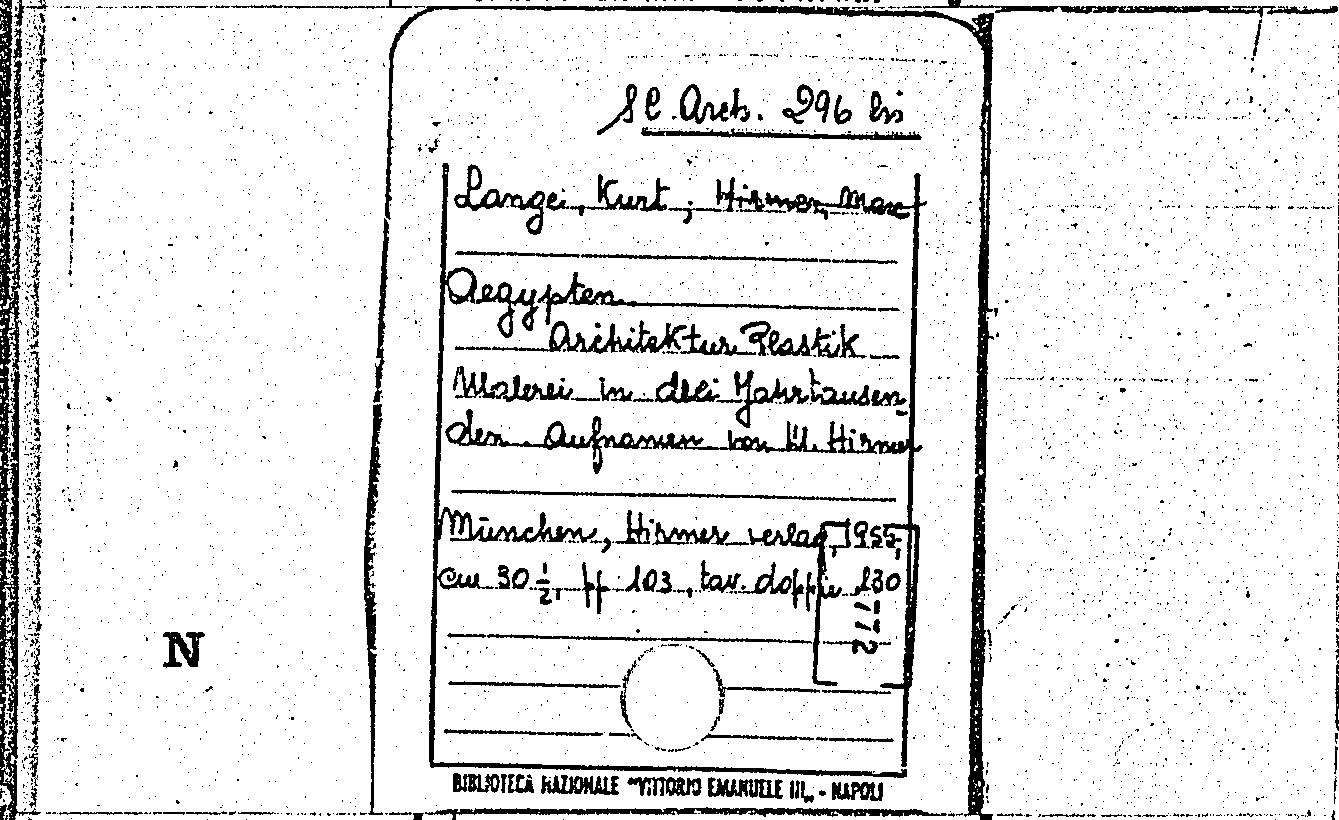 Sl. Arch. 296 bis
Lange, Kurt ; Hirmer, Max
Aegypten
Architektur Plastik
Malerei in drei Jahrtausen-
den. Aufnamen von M. Hirmer
München, Hirmer verlag, 1955,
cm 30 1/2, pp 103, tav. doppie 130
N
BIBLIOTECA NAZIONALE "VITTORIO EMANUELE III„ - NAPOLI